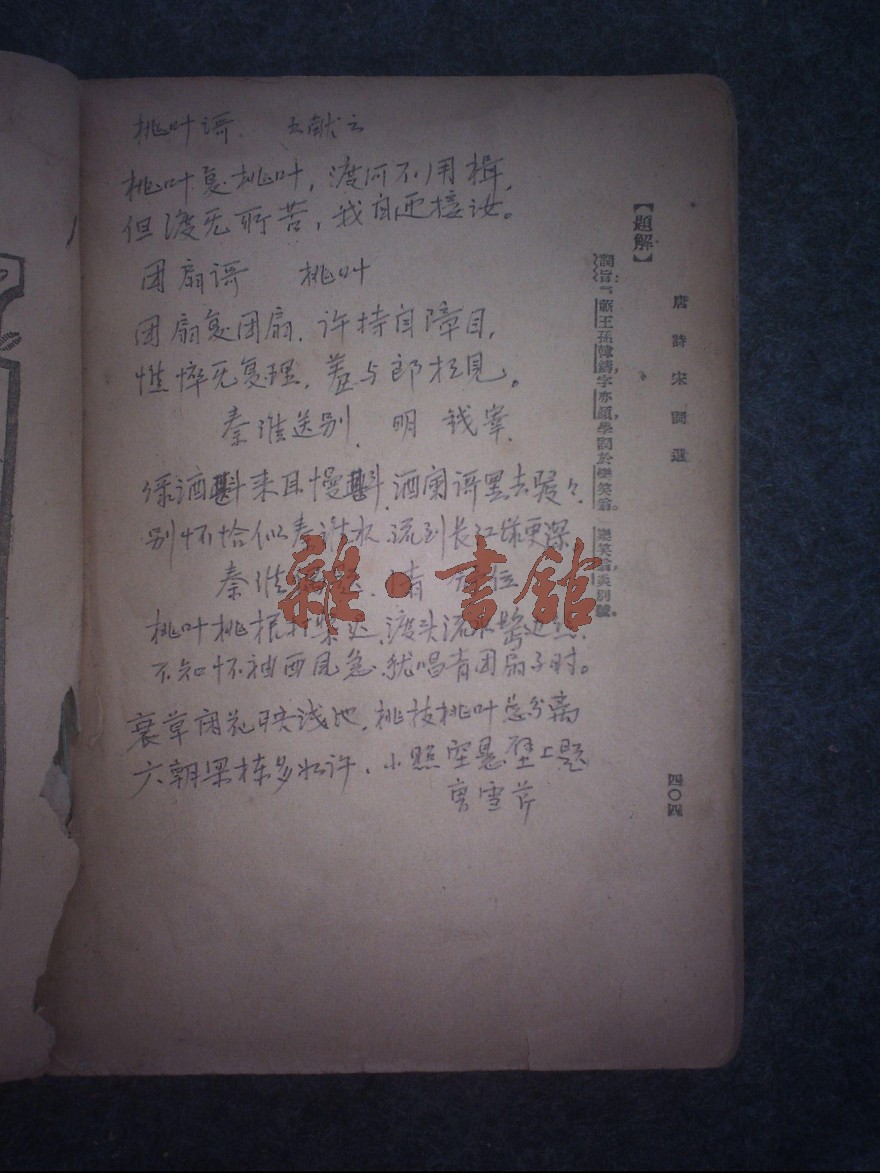 桃叶哥 王献之
桃叶复桃叶，渡河不用楫，
但渡无所苦，我自迎接汝。
团扇哥 桃叶
团扇复团扇，许持自障目，
憔悴无复理，羞与郎相见。
秦淮送别 明 钱宰
绿酒斟来且慢斟，酒阑哥罢去骎々
别怀恰似秦淮水，流到长江样更深
秦淮
桃叶桃根 渡头流水
不知怀袖西风急，犹唱青团扇子时。
衰草闲花映浅池，桃枝桃叶总分离
六朝梁栋多如许，小照空悬壁上题
曹雪芹
雜·書館
唐詩宋詞選
四〇四
【題解】
詞旨：「蘄王孫韓鑄，字亦顏，學詞於樂笑翁。」樂笑翁，炎別號。